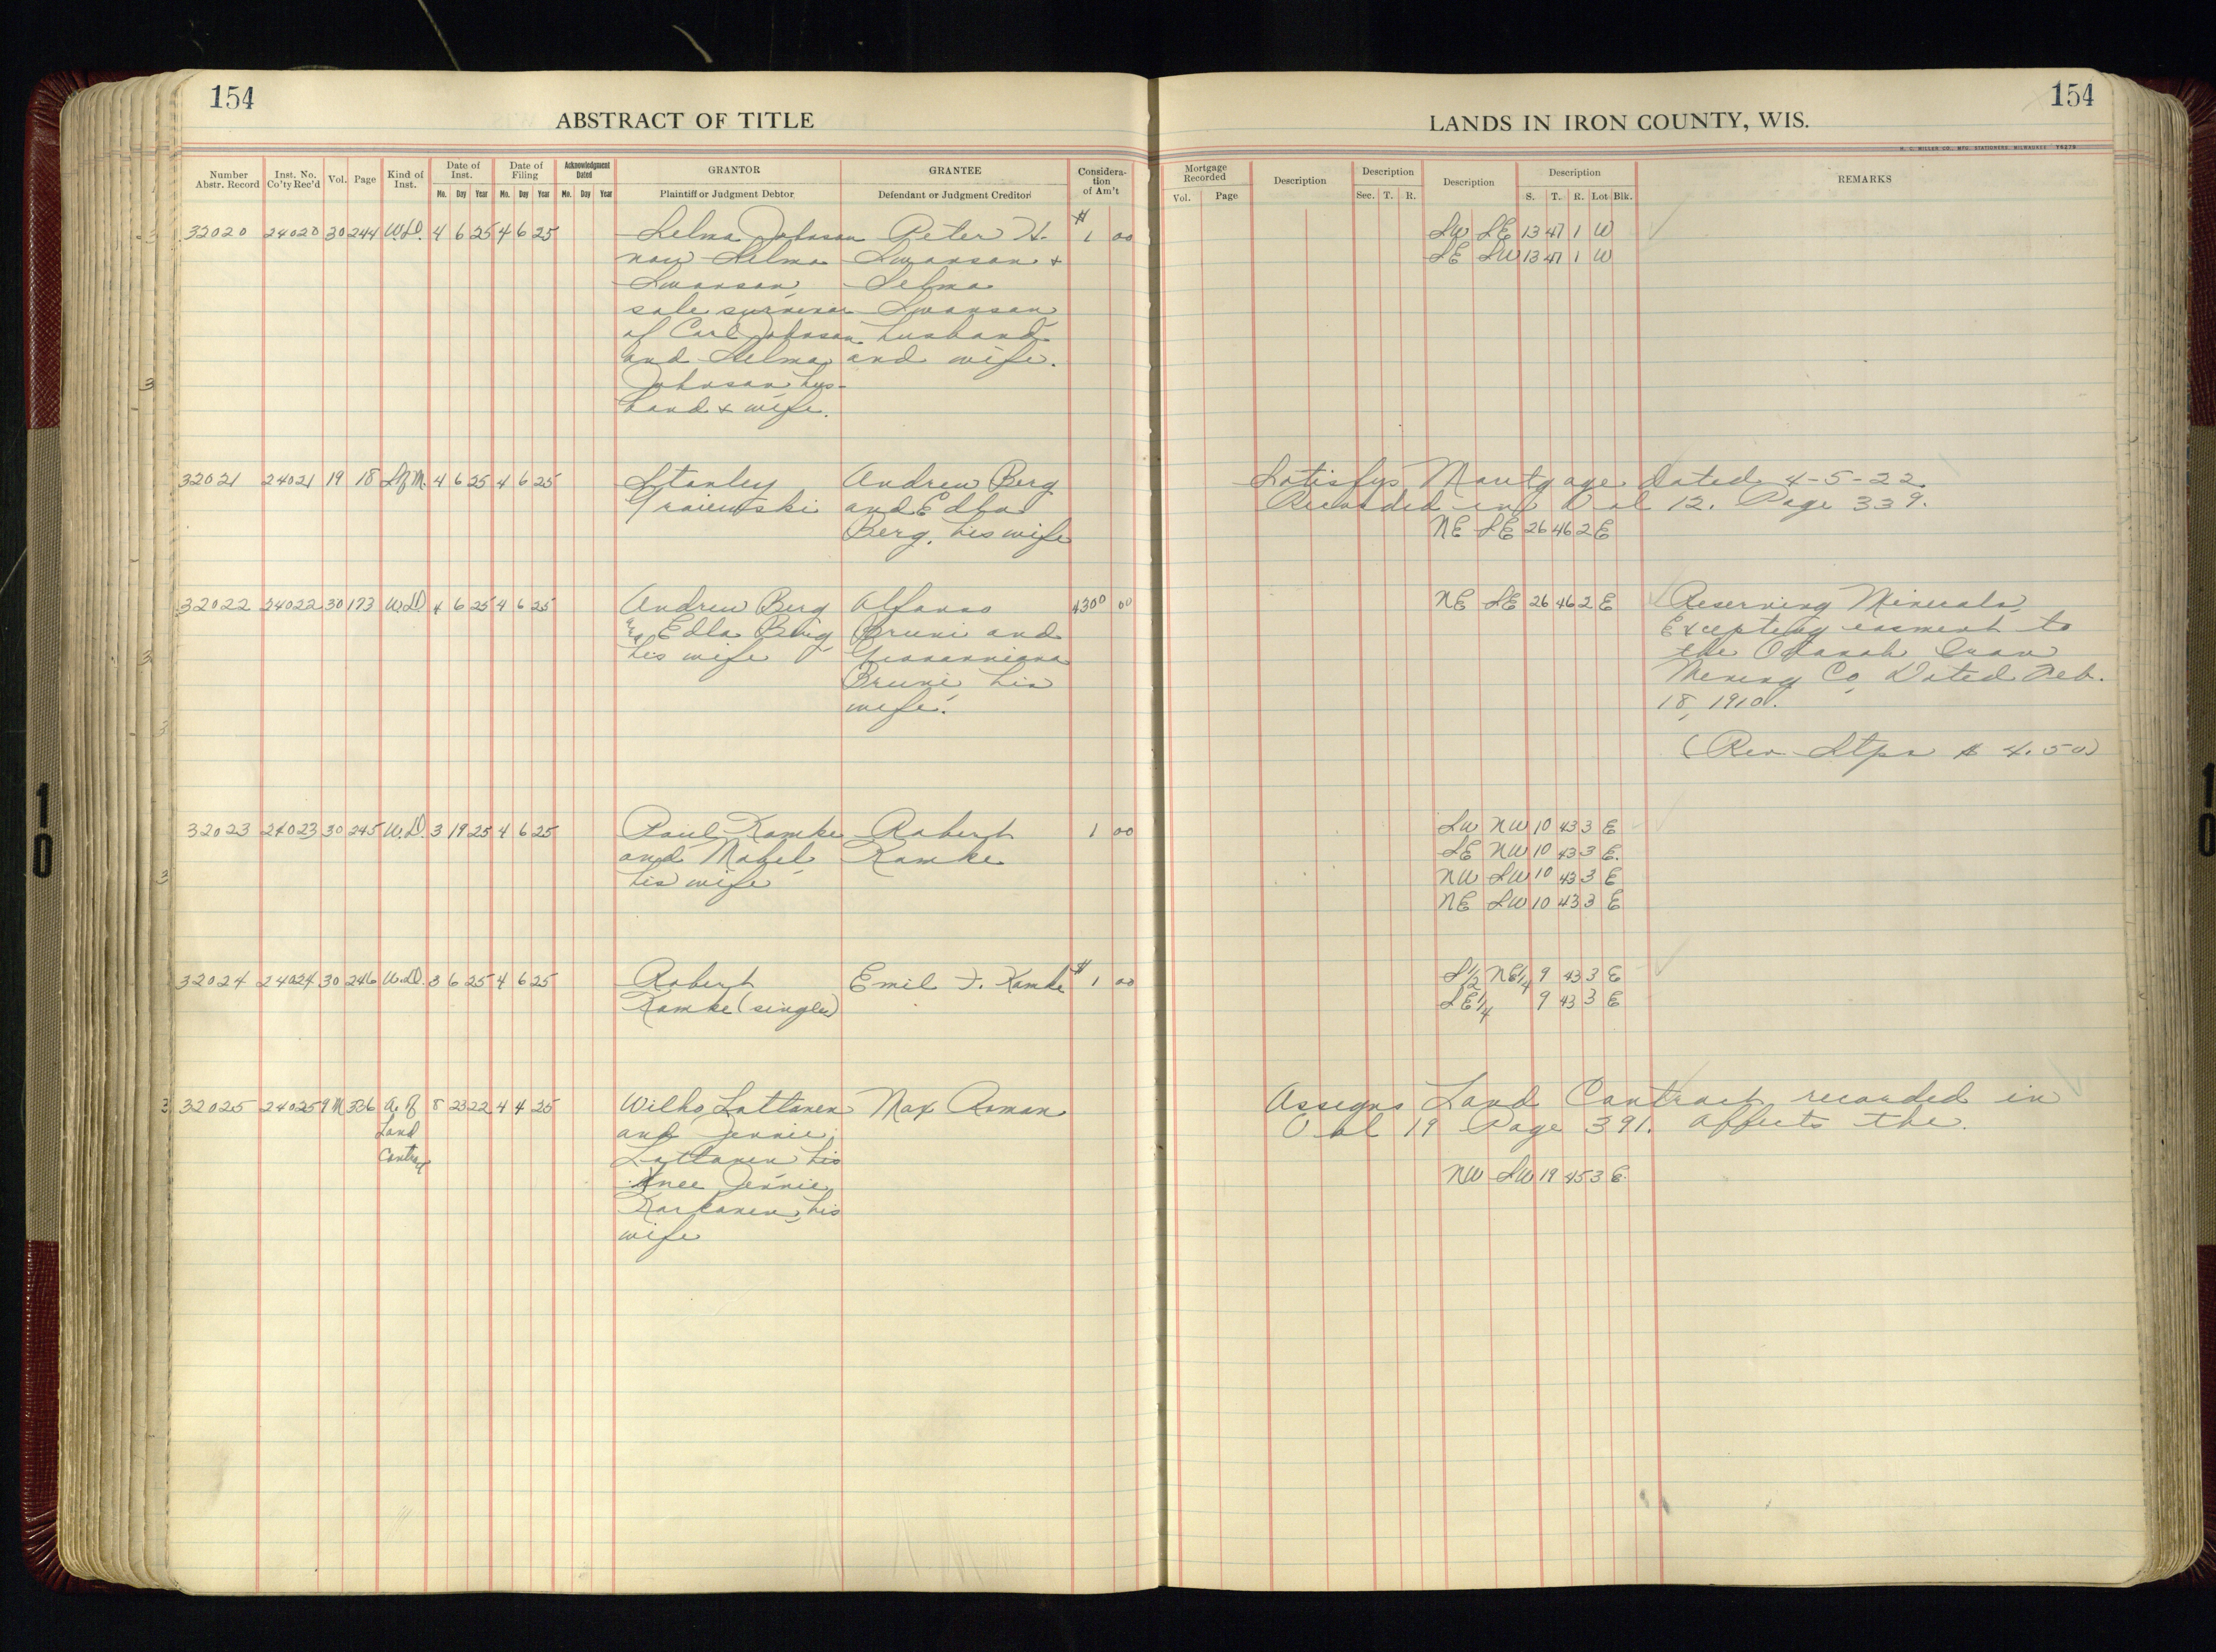 154
ABSTRACT OF TITLE
Number Abstr. Record Inst. No. Co'ty Rec'd Vol. Page Kind of Inst. Date of Inst. Mo. Day Year Date of Filing Mo. Day Year Acknowledgment Dated Mo. Day Year GRANTOR Plaintiff or Judgment Debtor GRANTEE Defendant or Judgment Creditor Considera-tion of Am't
32020 24020 30 244 W.D. 4 6 25 4 6 25 Selma Johnson Peter H. $ 1 00
now Selma Swanson +
Swanson, Selma
sole survivor Swanson
of Carl Johnson husband
and Selma and wife.
Johnson hus-
band + wife.
32021 24021 19 18 S of M. 4 6 25 4 6 25 Stanley Andrew Berg
and Edla
Berg, his wife
32022 24022 30 173 W.D. 4 6 25 4 6 25 Andrew Berg Alfonso 4300 00
Edla Berg Bruni and
his wife
Bruni, his
wife.
32023 24023 30 245 W.D. 3 19 25 4 6 25 Paul Kamke Robert 1 00
and Mabel, Kamke
his wife
32024 24024 30 246 W.D. 3 6 25 4 6 25 Robert Emil F. Kamke $ 1 00
Kamke (single)
32025 24025 9M 336 A. of 8 23 22 4 4 25 Wilho Lattanen Max Roman
Land and Jennie
Contract Lattanen his
nee Jennie
his
wife
154
LANDS IN IRON COUNTY, WIS.
H. C. MILLER CO., MFG. STATIONERS, MILWAUKEE
Mortgage Recorded Vol. Page Description Description Sec. T. R. Description Description S. T. R. Lot Blk. REMARKS
SW SE 13 47 1 W
SE SW 13 47 1 W
Satisfys Mortgage dated 4-5-22
Recorded in Vol 12. Page 339.
NE SE 26 46 2 E
NE SE 26 46 2 E Reserving Minerals,
Excepting easment to
the Odanah Iron
Mining Co, Dated Feb.
18, 1910.
(Rev Stps $ 4.50)
SW NW 10 43 3 E
SE NW 10 43 3 E.
NW SW 10 43 3 E
NE SW 10 43 3 E
S1/2 NE1/4 9 43 3 E
SE1/4 9 43 3 E
Assigns Land Contract recorded in
Vol 19 Page 391. affects the.
NW SW 19 45 3 E.
10
10